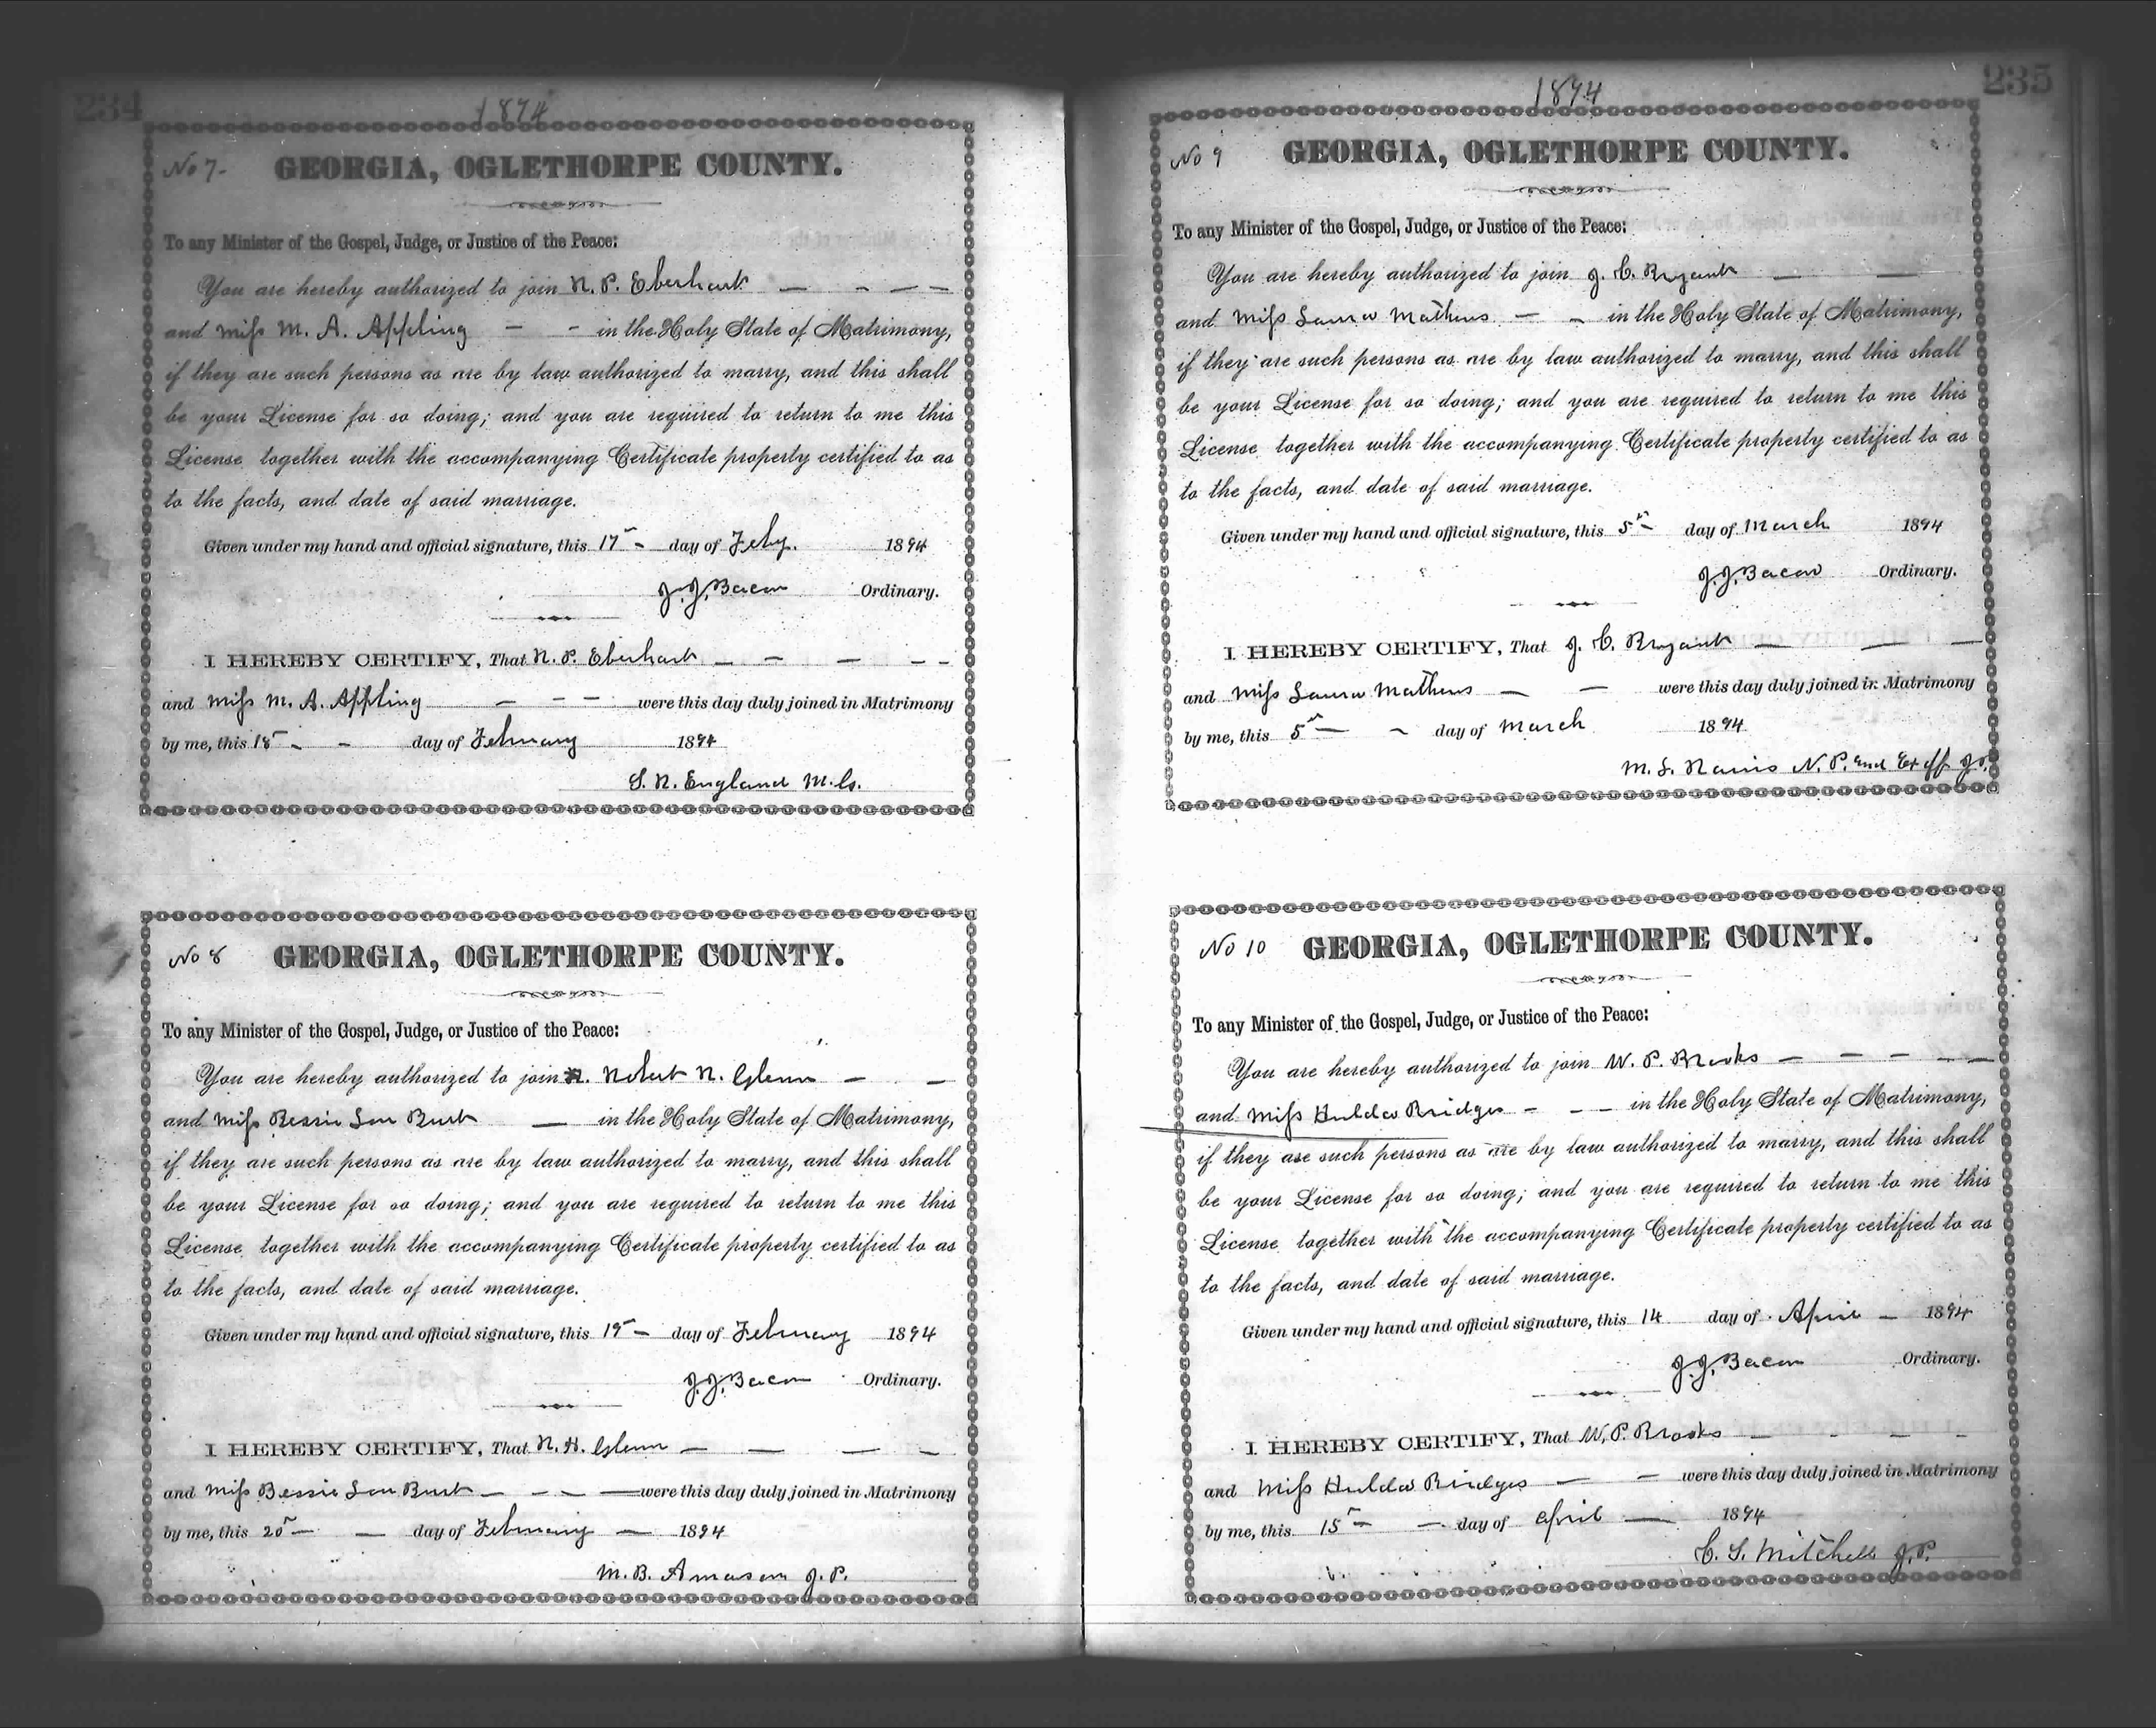 234
1894
No 7-
GEORGIA, OGLETHORPE COUNTY.
To any Minister of the Gospel, Judge, or Justice of the Peace:
You are hereby authorized to join N. P. Eberhart
and Miss M. A. Appling in the Holy State of Matrimony,
if they are such persons as are by law authorized to marry, and this shall
be your License for so doing; and you are required to return to me this
License together with the accompanying Certificate property certified to as
to the facts, and date of said marriage.
Given under my hand and official signature, this 17th day of Feby. 1894
J. J. Bacon Ordinary.
I HEREBY CERTIFY, That N. P. Eberhart
and Miss M. A. Appling were this day duly joined in Matrimony
by me, this 18th day of February 1894
S. R. England M.G.
No 8
GEORGIA, OGLETHORPE COUNTY.
To any Minister of the Gospel, Judge, or Justice of the Peace:
You are hereby authorized to join Robert H. Glenn
and Miss Bessie Lou Burt in the Holy State of Matrimony,
if they are such persons as are by law authorized to marry, and this shall
be your License for so doing; and you are required to return to me this
License together with the accompanying Certificate property certified to as
to the facts, and date of said marriage.
Given under my hand and official signature, this 19th day of February 1894
J. J. Bacon Ordinary.
I HEREBY CERTIFY, That R. H. Glenn
and Miss Bessie Lou Burt were this day duly joined in Matrimony
by me, this 20th day of February 1894
M. B. Amason J. P.
235
1894
No 9
GEORGIA, OGLETHORPE COUNTY.
To any Minister of the Gospel, Judge, or Justice of the Peace:
You are hereby authorized to join J. C. Bryant
and Miss Laura Mathews in the Holy State of Matrimony,
if they are such persons as are by law authorized to marry, and this shall
be your License for so doing; and you are required to return to me this
License together with the accompanying Certificate property certified to as
to the facts, and date of said marriage.
Given under my hand and official signature, this 5th day of March 1894
J. J. Bacon Ordinary.
I HEREBY CERTIFY, That J. C. Bryant
and Miss Laura Mathews were this day duly joined in Matrimony
by me, this 5th day of March 1894
M. L. N. P. and Ex off J.P.
No 10
GEORGIA, OGLETHORPE COUNTY.
To any Minister of the Gospel, Judge, or Justice of the Peace:
You are hereby authorized to join W. P. Brooks
and Miss Hulda Bridges in the Holy State of Matrimony,
if they are such persons as are by law authorized to marry, and this shall
be your License for so doing; and you are required to return to me this
License together with the accompanying Certificate property certified to as
to the facts, and date of said marriage.
Given under my hand and official signature, this 14 day of April 1894
J. J. Bacon Ordinary.
I HEREBY CERTIFY, That W. P. Brooks
and Miss Hulda Bridges were this day duly joined in Matrimony
by me, this 15th day of April 1894
C. S. Mitchell J.P.